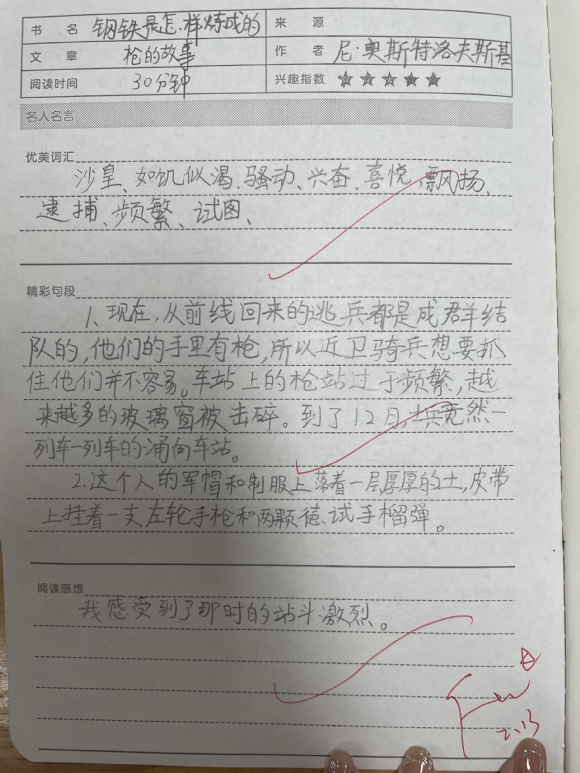 书 名 钢铁是怎样炼成的 来 源
文 章 枪的故事 作 者 尼·奥斯特洛夫斯基
阅读时间 30分钟 兴趣指数 ★★★★★
名人名言
优美词汇
沙皇、如饥似渴、骚动、兴奋、喜悦、飘扬、
逮捕、频繁、试图、
精彩句段
1、现在,从前线回来的逃兵都是成群结
队的,他们的手里有枪,所以近卫骑兵想要抓
住他们并不容易。车站上的枪站过于频繁,越
来越多的玻璃窗被击碎。到了12日,士兵竟然一
列车一列车的涌向车站。
2.这个人的军帽和制服上落着一层厚厚的土,皮带
上挂着一支左轮手枪和两颗德试手榴弹。
阅读感想
我感受到了那时的站斗激烈。
2.13